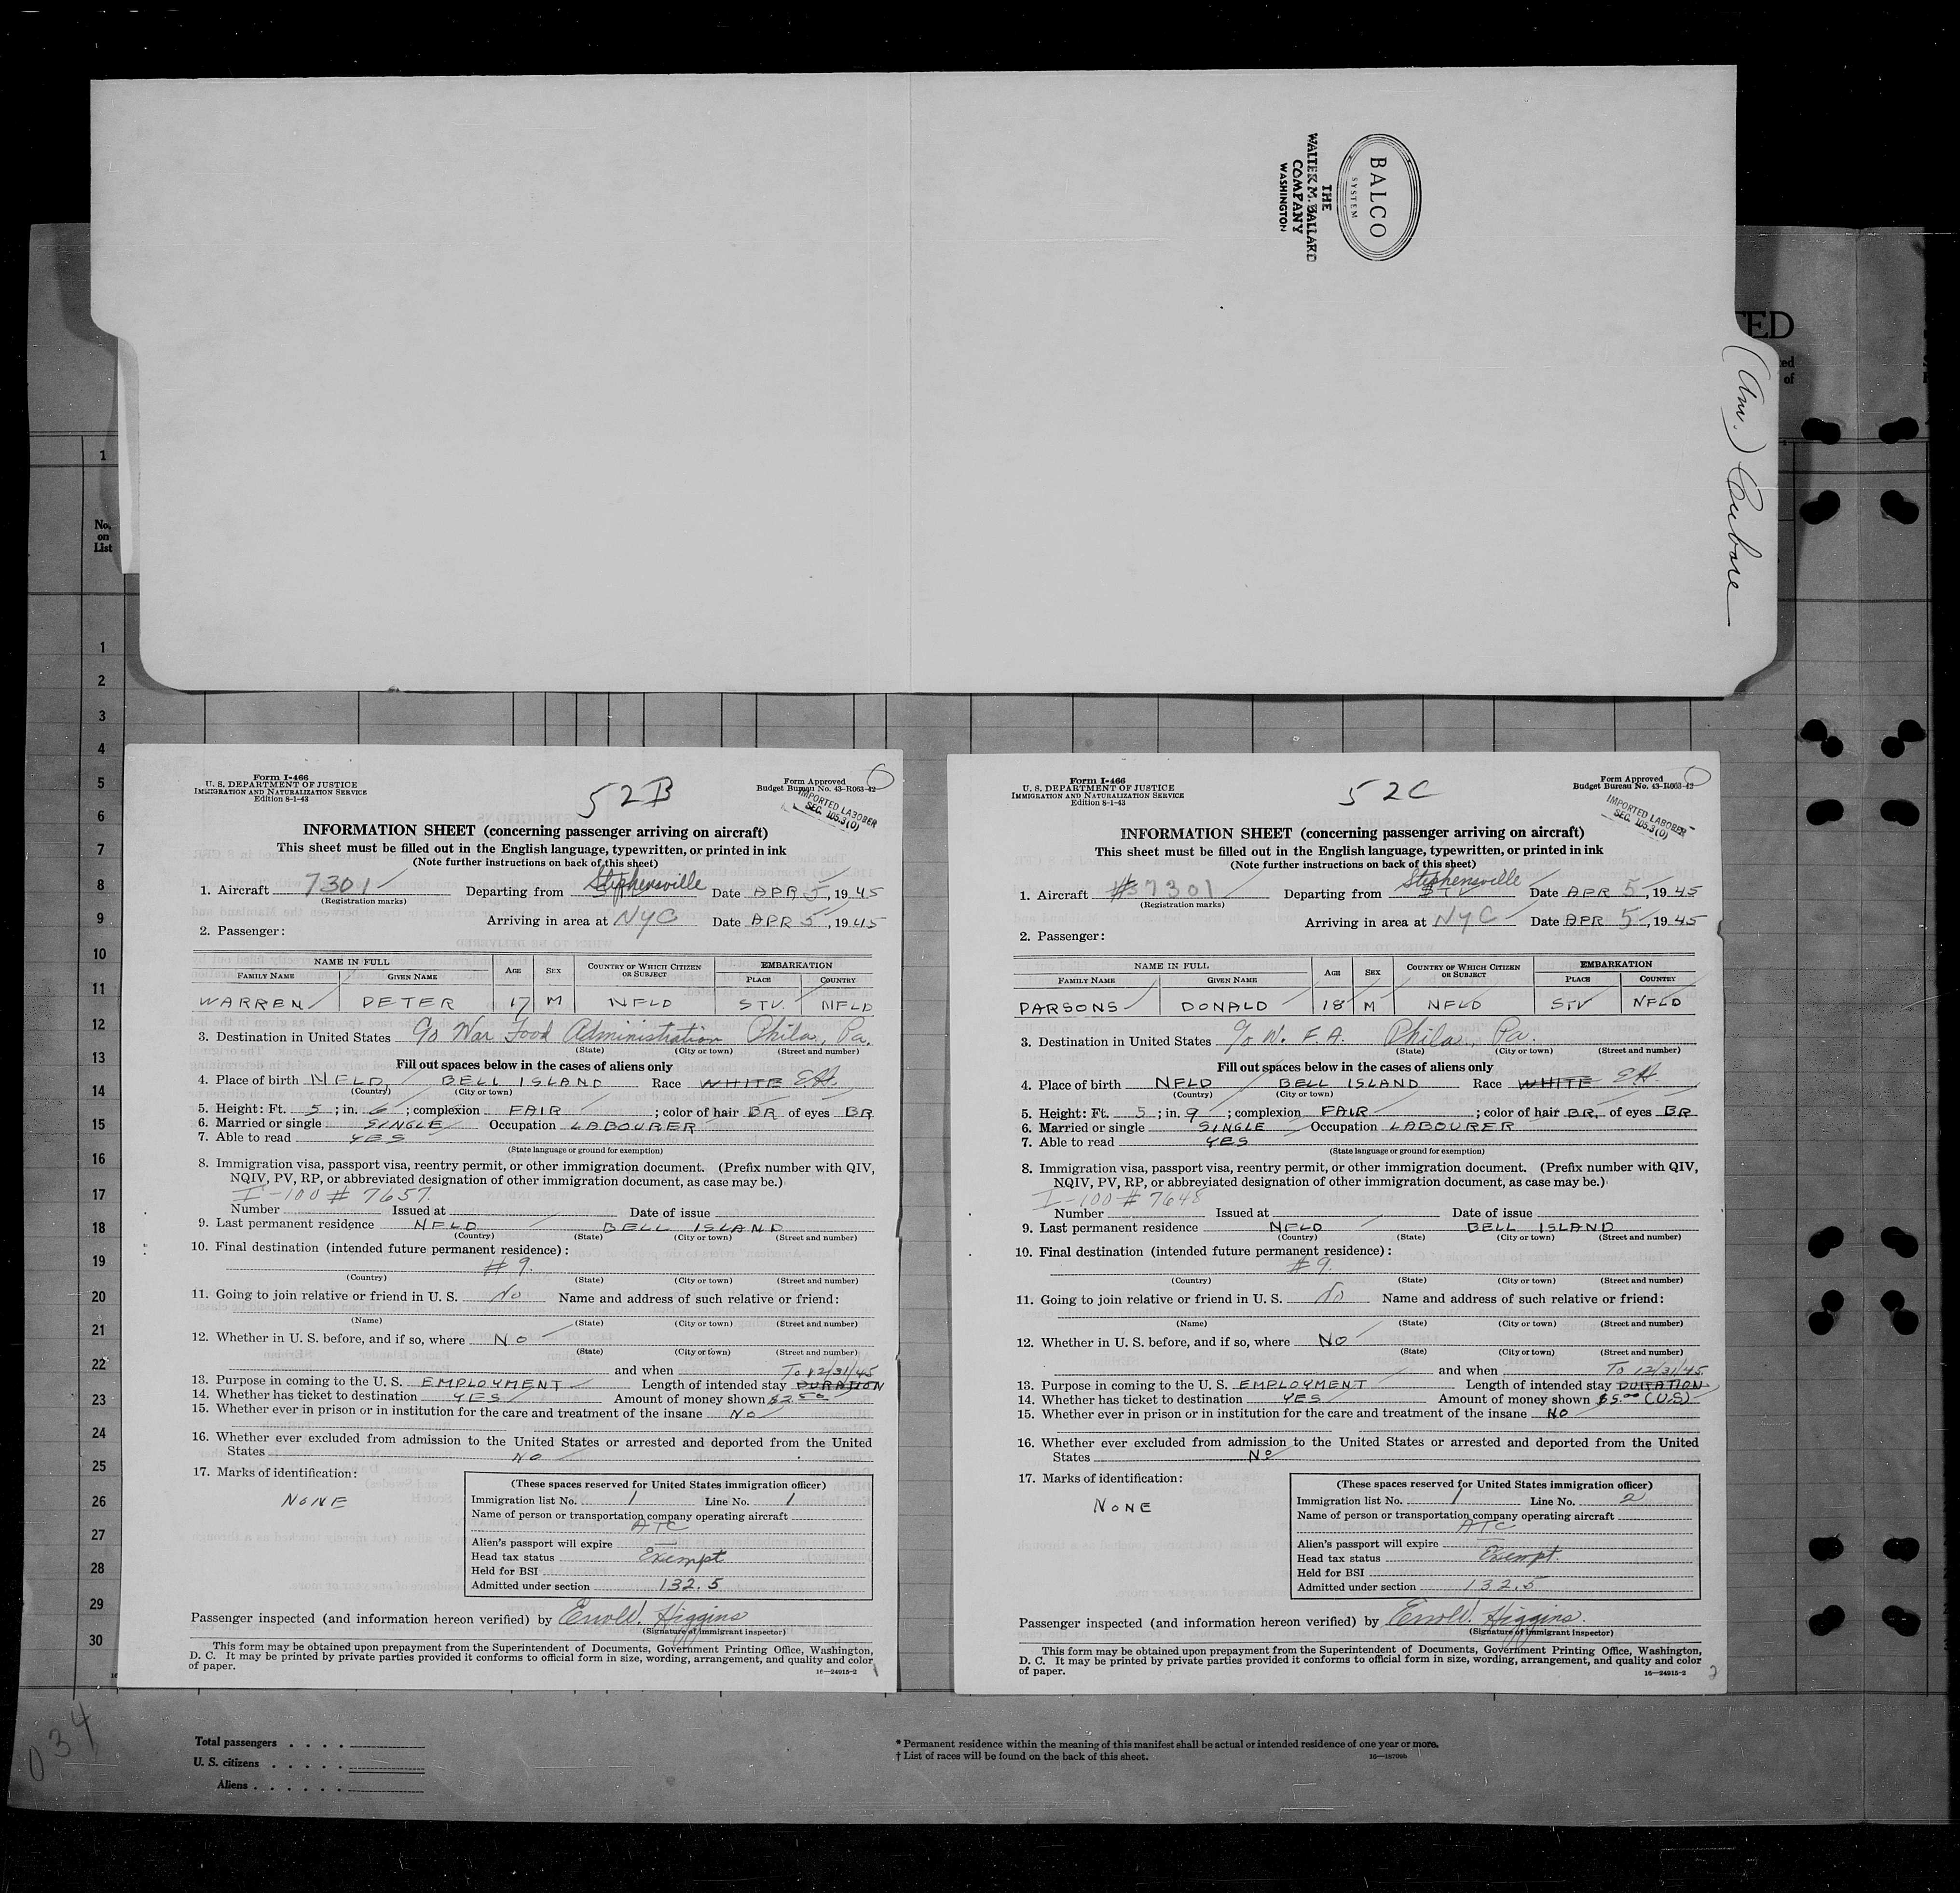 BALCO
SYSTEM
THE
WALTER M. BALLARD
COMPANY
WASHINGTON
TED
ed
of
(Am.)
1
No.
on
List
1
2
3
4
5
6
7
8
9
10
11
12
13
14
15
16
17
18
19
20
21
22
23
24
25
26
27
28
29
30
Form I-466
U. S. DEPARTMENT OF JUSTICE
IMMIGRATION AND NATURALIZATION SERVICE
Edition 8-1-43
52B
Form Approved
Budget Bureau No. 43-R063-42
IMPORTED LABORER
SEC. 105.3(O)
INFORMATION SHEET (concerning passenger arriving on aircraft)
This sheet must be filled out in the English language, typewritten, or printed in ink
(Note further instructions on back of this sheet)
1. Aircraft 7301 Departing from Stephensville Date APR 5, 1945
(Registration marks)
Arriving in area at NYC Date APR 5, 1945
2. Passenger:
NAME IN FULL AGE SEX COUNTRY OF WHICH CITIZEN OR SUBJECT EMBARKATION
FAMILY NAME GIVEN NAME PLACE COUNTRY
WARREN PETER 17 M NFLD STV. NFLD
3. Destination in United States c/o War Food Administration Phila., Pa.
(State) (City or town) (Street and number)
Fill out spaces below in the cases of aliens only
4. Place of birth NFLD, BELL ISLAND Race WHITE EH.
(Country) (City or town)
5. Height: Ft. 5; in. 6; complexion FAIR; color of hair BR of eyes BR
6. Married or single SINGLE Occupation LABOURER
7. Able to read YES
(State language or ground for exemption)
8. Immigration visa, passport visa, reentry permit, or other immigration document. (Prefix number with QIV,
NQIV, PV, RP, or abbreviated designation of other immigration document, as case may be.)
I-100 # 7657.
Number Issued at Date of issue
9. Last permanent residence NFLD BELL ISLAND
(Country) (State) (City or town) (Street and number)
10. Final destination (intended future permanent residence):
# 9.
(Country) (State) (City or town) (Street and number)
11. Going to join relative or friend in U. S. No Name and address of such relative or friend:
(Name) (State) (City or town) (Street and number)
12. Whether in U. S. before, and if so, where No
(State) (City or town) (Street and number)
and when To 12/31/45
13. Purpose in coming to the U. S. EMPLOYMENT Length of intended stay DURATION
14. Whether has ticket to destination YES Amount of money shown $2.50
15. Whether ever in prison or in institution for the care and treatment of the insane No
16. Whether ever excluded from admission to the United States or arrested and deported from the United
States No
17. Marks of identification:
NONE
(These spaces reserved for United States immigration officer)
Immigration list No. 1 Line No. 1
Name of person or transportation company operating aircraft
ATC
Alien's passport will expire —
Head tax status Exempt
Held for BSI
Admitted under section 132.5
Passenger inspected (and information hereon verified) by Errol W. Higgins
(Signature of immigrant inspector)
This form may be obtained upon prepayment from the Superintendent of Documents, Government Printing Office, Washington,
D. C. It may be printed by private parties provided it conforms to official form in size, wording, arrangement, and quality and color
of paper.
16—24915-2
Form I-466
U. S. DEPARTMENT OF JUSTICE
IMMIGRATION AND NATURALIZATION SERVICE
Edition 8-1-43
52C
Form Approved
Budget Bureau No. 43-R063-42
IMPORTED LABORER
SEC. 105.3(O)
INFORMATION SHEET (concerning passenger arriving on aircraft)
This sheet must be filled out in the English language, typewritten, or printed in ink
(Note further instructions on back of this sheet)
1. Aircraft #37301 Departing from Stephensville Date APR 5, 1945
(Registration marks)
Arriving in area at NYC Date APR 5, 1945
2. Passenger:
NAME IN FULL AGE SEX COUNTRY OF WHICH CITIZEN OR SUBJECT EMBARKATION
FAMILY NAME GIVEN NAME PLACE COUNTRY
PARSONS DONALD 18 M NFLD STV NFLD
3. Destination in United States c/o W. F. A. Phila., Pa.
(State) (City or town) (Street and number)
Fill out spaces below in the cases of aliens only
4. Place of birth NFLD BELL ISLAND Race WHITE EH.
(Country) (City or town)
5. Height: Ft. 5; in. 9; complexion FAIR; color of hair BR. of eyes BR
6. Married or single SINGLE Occupation LABOURER
7. Able to read YES
(State language or ground for exemption)
8. Immigration visa, passport visa, reentry permit, or other immigration document. (Prefix number with QIV,
NQIV, PV, RP, or abbreviated designation of other immigration document, as case may be.)
I-100 # 7648
Number Issued at Date of issue
9. Last permanent residence NFLD BELL ISLAND
(Country) (State) (City or town) (Street and number)
10. Final destination (intended future permanent residence):
# 9.
(Country) (State) (City or town) (Street and number)
11. Going to join relative or friend in U. S. No Name and address of such relative or friend:
(Name) (State) (City or town) (Street and number)
12. Whether in U. S. before, and if so, where No
(State) (City or town) (Street and number)
and when To 12/31/45
13. Purpose in coming to the U. S. EMPLOYMENT Length of intended stay DURATION
14. Whether has ticket to destination YES Amount of money shown $5.00 (US)
15. Whether ever in prison or in institution for the care and treatment of the insane NO
16. Whether ever excluded from admission to the United States or arrested and deported from the United
States No
17. Marks of identification:
NONE
(These spaces reserved for United States immigration officer)
Immigration list No. 1 Line No. 2
Name of person or transportation company operating aircraft
ATC
Alien's passport will expire
Head tax status Exempt.
Held for BSI
Admitted under section 132.5
Passenger inspected (and information hereon verified) by Errol W. Higgins.
(Signature of immigrant inspector)
This form may be obtained upon prepayment from the Superintendent of Documents, Government Printing Office, Washington,
D. C. It may be printed by private parties provided it conforms to official form in size, wording, arrangement, and quality and color
of paper.
16—24915-2
2
034
Total passengers . . . .
U. S. citizens . . . . .
Aliens . . . . . .
* Permanent residence within the meaning of this manifest shall be actual or intended residence of one year or more.
† List of races will be found on the back of this sheet.